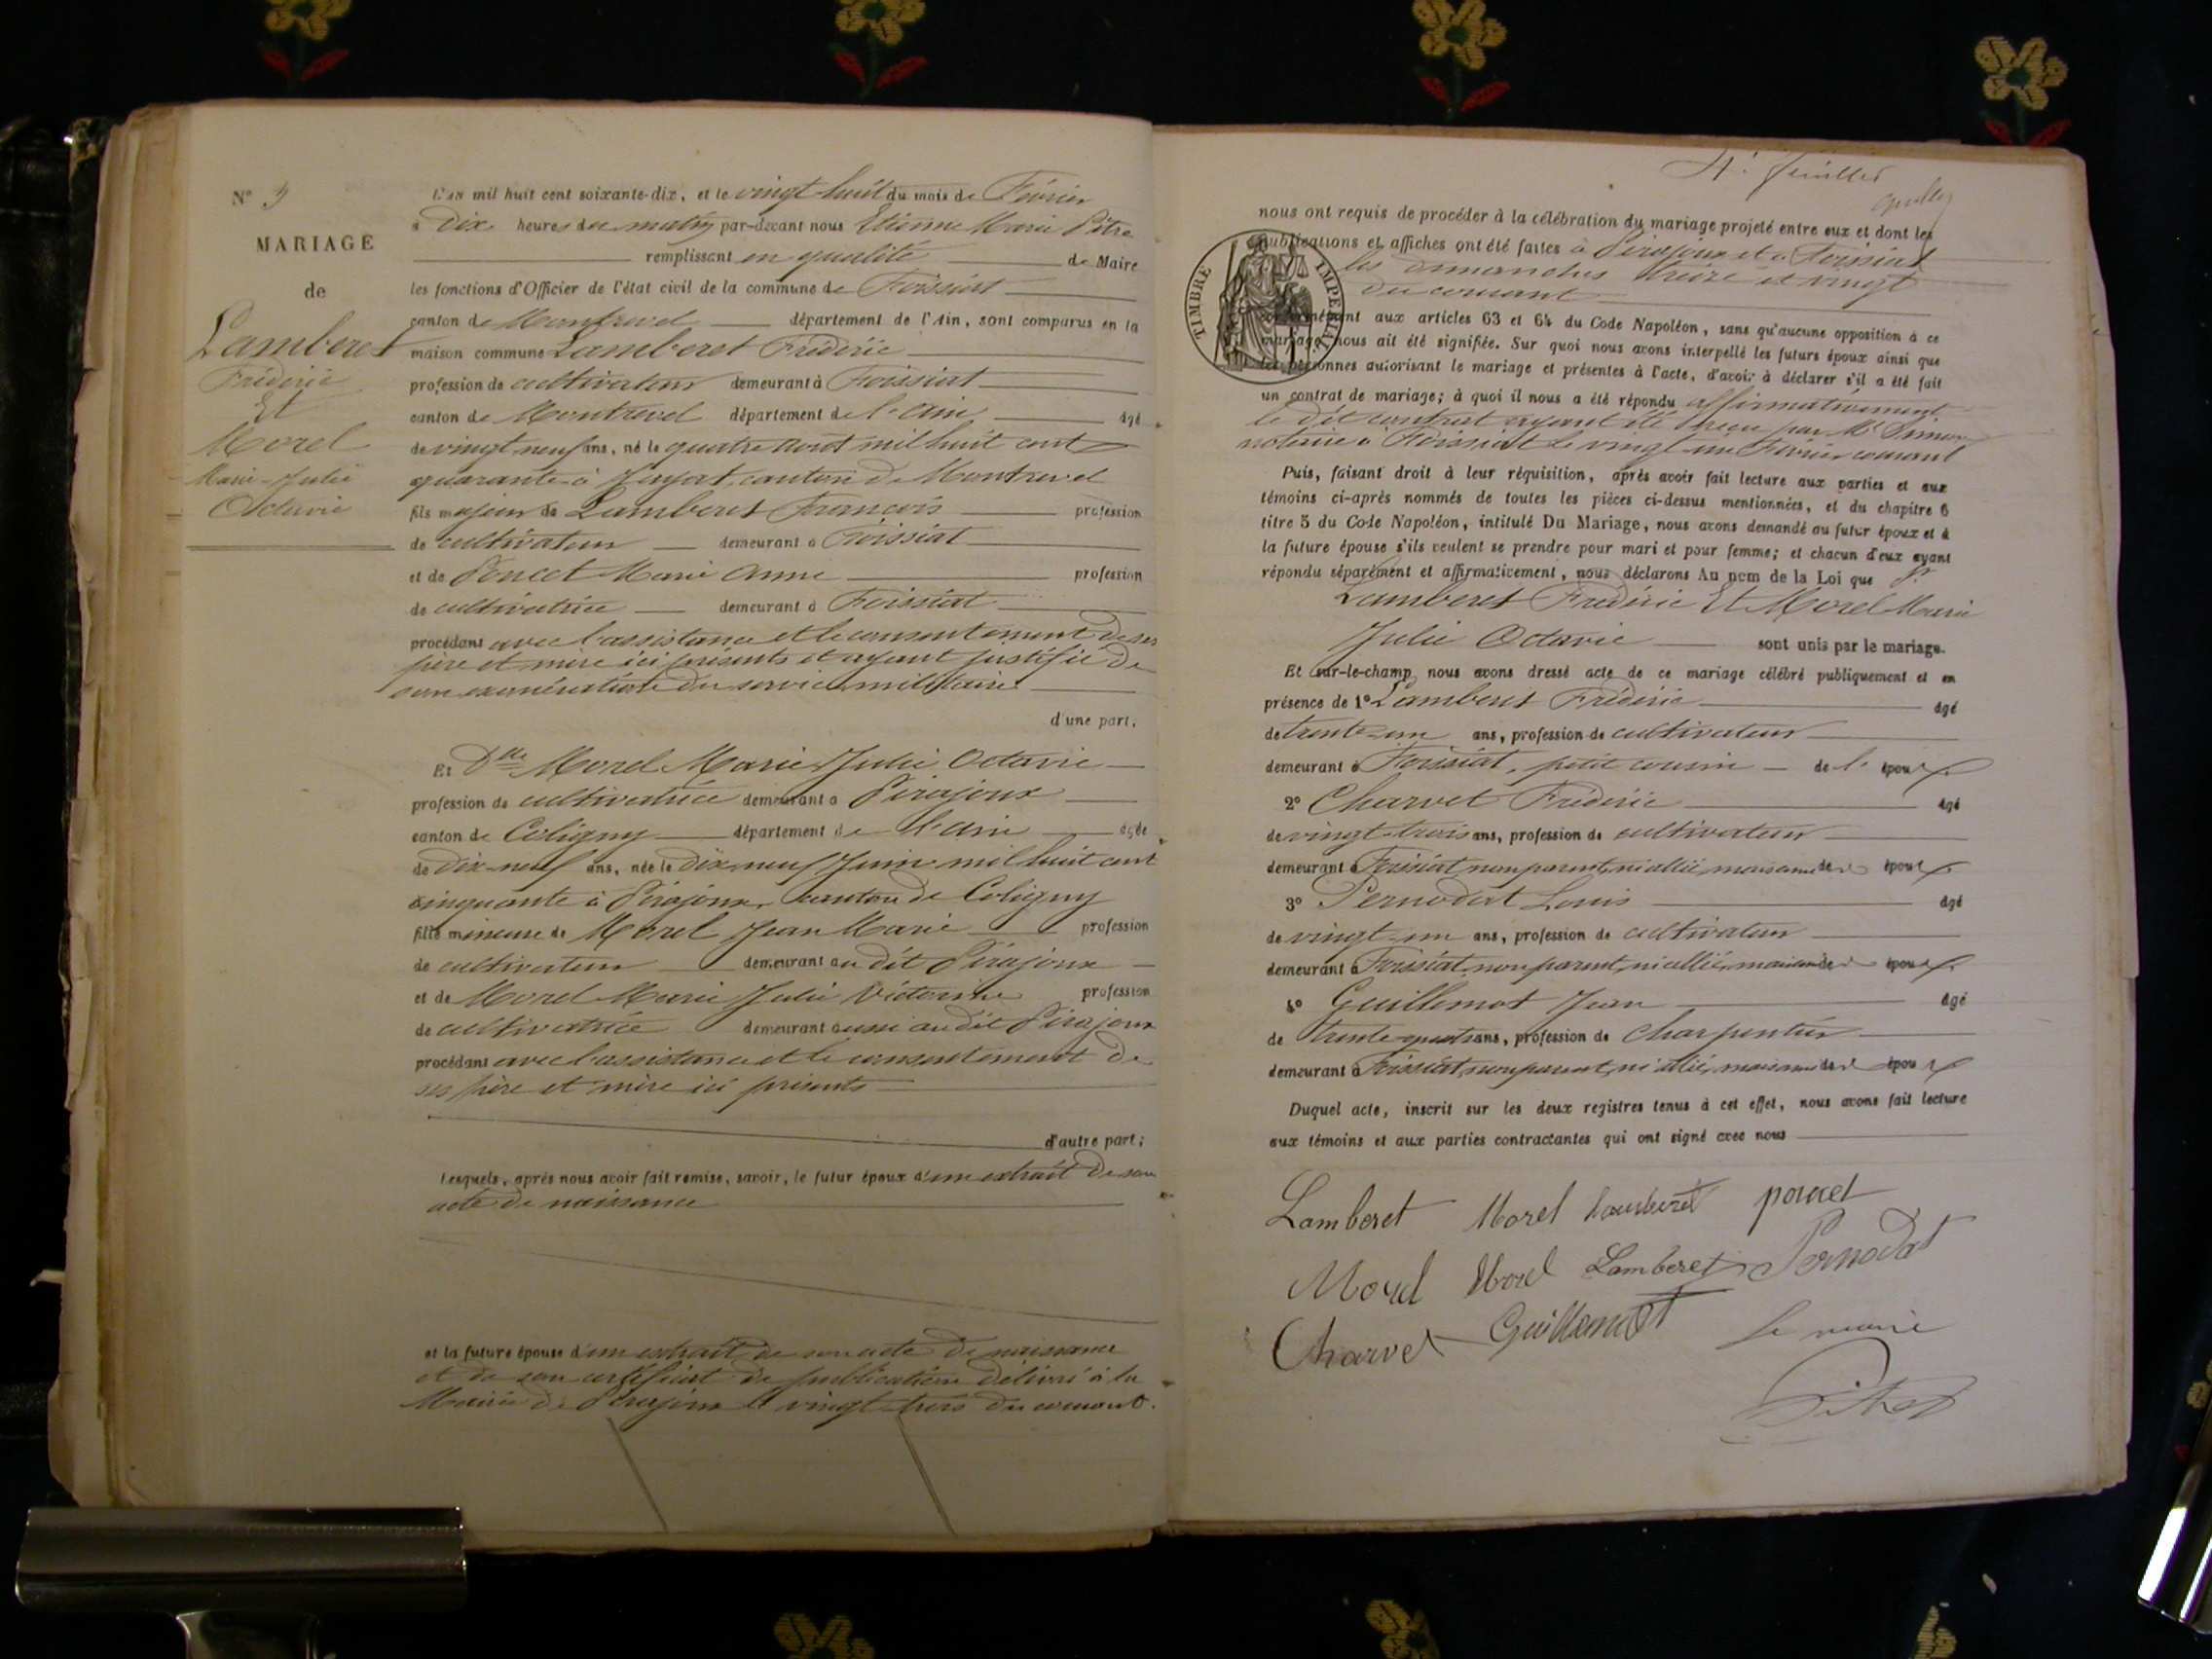 N° 9
MARIAGE
de
Lamberet
Fréderic
Et
Morel
Marie-Julie
Octavie
L'an mil huit cent soixante-dix, et le vingt huit du mois de Février
à Dix heures du matin par-devant nous Etienne Marie Pitre
remplissant en qualité de Maire
les fonctions d'Officier de l'état civil de la commune de Foissiat
canton de Montrevel département de l'Ain, sont comparus en la
maison commune Lamberet Fréderic
profession de cultivateur demeurant à Foissiat
canton de Montrevel département de l'Ain âgé
de vingt neuf ans, né le quatre août mil huit cent
quarante à Jayat, canton de Montrevel
fils majeur de Lamberet François profession
de cultivateur demeurant à Foissiat
et de Poncet Marie Anne profession
de cultivatrice demeurant à Foissiat
procédant avec l'assistance et le consentement de ses
père et mère ici présents et ayant justifié de
son exonération du service militaire
d'une part,
Et Dlle Morel Marie Julie Octavie
profession de cultivatrice demeurant à Pirajoux
canton de Coligny département de l'Ain âgée
de dix-neuf ans, née le dix neuf Juin mil huit cent
cinquante à Pirajoux, canton de Coligny
fille mineure de Morel Jean Marie profession
de cultivateur demeurant au dit Pirajoux
et de Morel Marie Julie Victorine profession
de cultivatrice demeurant aussi au dit Pirajoux
procédant avec l'assistance et le consentement de
ses père et mère ici présents
d'autre part;
Lesquels, après nous avoir fait remise, savoir, le futur époux d'un extrait de son
acte de naissance
et la future épouse d'un extrait de son acte de naissance
et de son certificat de publication délivré à la
Mairie de Pirajoux le vingt trois du courant.
4e feuillet
nous ont requis de procéder à la célébration du mariage projeté entre eux et dont les
publications et affiches ont été faites à Pirajoux et à Foissiat
les dimanches treize et vingt
du courant
TIMBRE IMPERIAL
conformément aux articles 63 et 64 du Code Napoléon, sans qu'aucune opposition à ce
mariage nous ait été signifiée. Sur quoi nous avons interpellé les futurs époux ainsi que
les personnes autorisant le mariage et présentes à l'acte, d'avoir à déclarer s'il a été fait
un contrat de mariage; à quoi il nous a été répondu affirmativement
le dit contrat ayant été reçu par Me Simon
notaire à Foissiat le vingt un Février courant
Puis, faisant droit à leur réquisition, après avoir fait lecture aux parties et aux
témoins ci-après nommés de toutes les pièces ci-dessus mentionnées, et du chapitre 6
titre 5 du Code Napoléon, intitulé Du Mariage, nous avons demandé au futur époux et à
la future épouse s'ils veulent se prendre pour mari et pour femme; et chacun d'eux ayant
répondu séparément et affirmativement, nous déclarons Au nom de la Loi que Sr
Lamberet Fréderic Et Morel Marie
Julie Octavie sont unis par le mariage.
Et sur-le-champ nous avons dressé acte de ce mariage célébré publiquement et en
présence de 1° Lamberet Fréderic âgé
de trente-un ans, profession de cultivateur
demeurant à Foissiat, petit cousin de l'époux
2° Charvet Fréderic âgé
de vingt-trois ans, profession de cultivateur
demeurant à Foissiat non parent, ni allié, mais ami de l'époux
3° Pernodat Louis âgé
de vingt-un ans, profession de cultivateur
demeurant à Foissiat non parent, ni allié, mais ami de l'époux
4° Guillemot Jean âgé
de trente-quatre ans, profession de charpentier
demeurant à Foissiat, non parent, ni allié, mais ami de l'époux
Duquel acte, inscrit sur les deux registres tenus à cet effet, nous avons fait lecture
aux témoins et aux parties contractantes qui ont signé avec nous
Lamberet Morel Lamberet poncet
Morel Morel Lamberet Pernodat
Charvet Guillemot le maire
Pitre